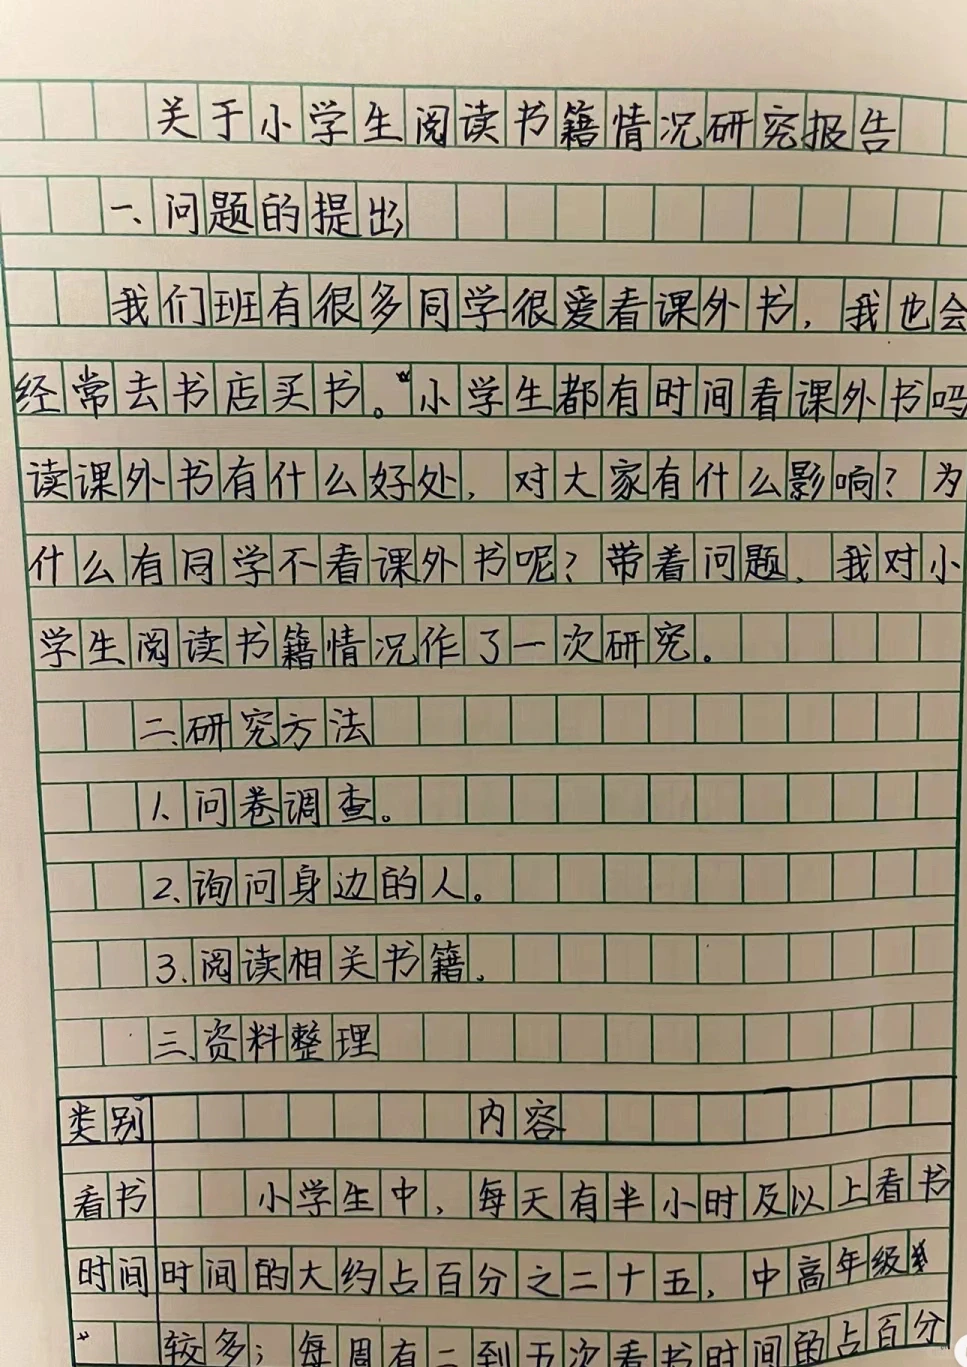 关于小学生阅读书籍情况研究报告
一、问题的提出
我们班有很多同学很爱看课外书，我也会
经常去书店买书。“小学生都有时间看课外书吗
读课外书有什么好处，对大家有什么影响？为
什么有同学不看课外书呢？带着问题，我对小
学生阅读书籍情况作了一次研究。
二、研究方法
1、问卷调查。
2、询问身边的人。
3、阅读相关书籍。
三、资料整理
类别 内容
看书 小学生中，每天有半小时及以上看书
时间 时间的大约占百分之二十五，中高年级
较多；每周有二到五次看书时间的占百分